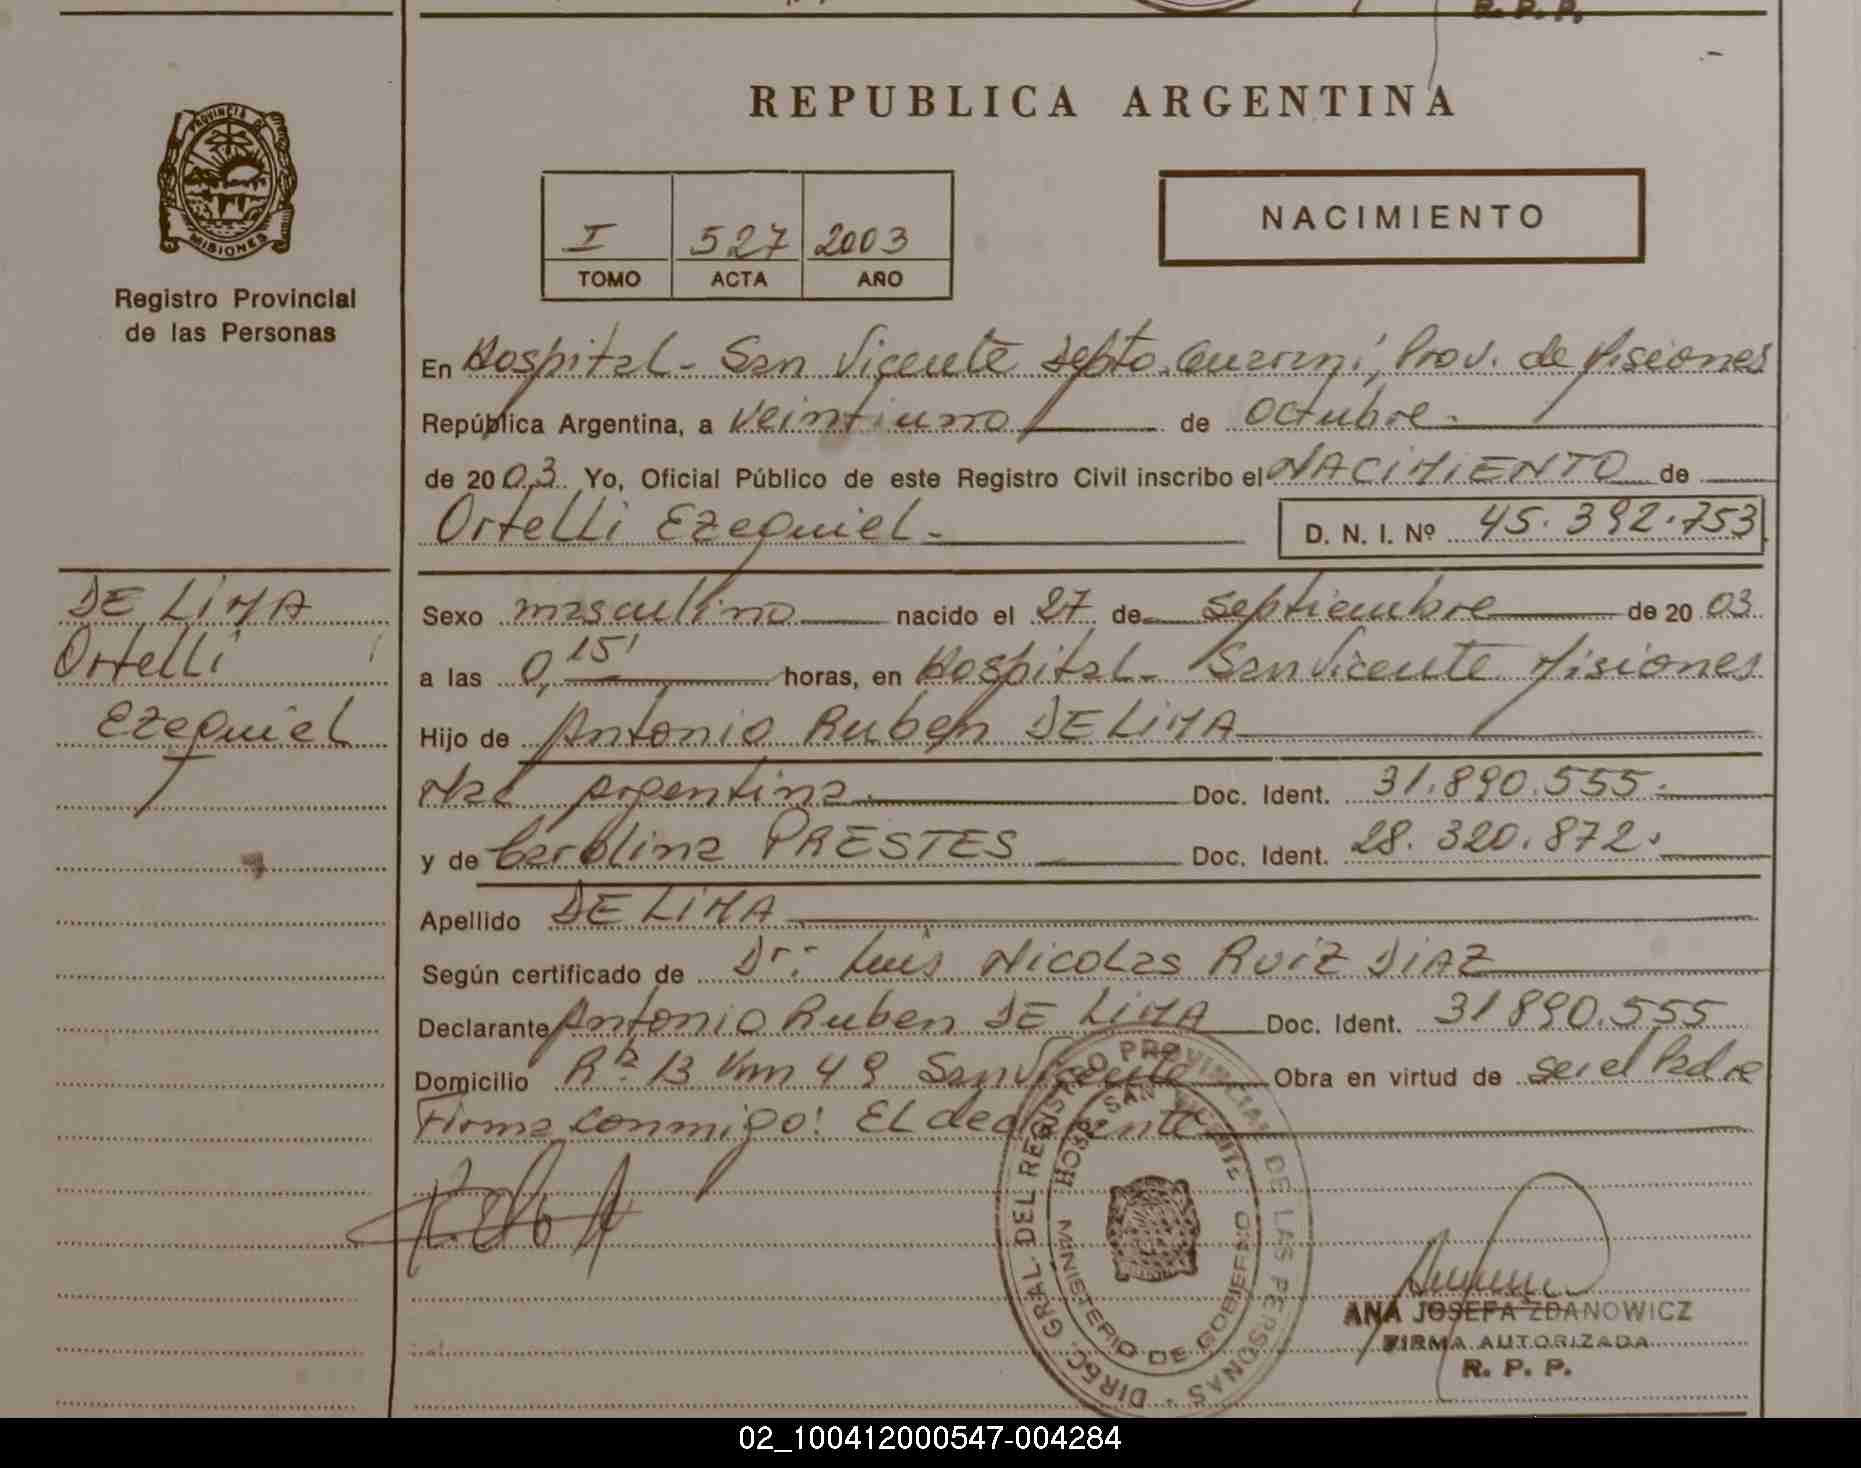 R. P. P.
REPUBLICA ARGENTINA
PROVINCIA DE
MISIONES
Registro Provincial
de las Personas
I 527 2003
TOMO ACTA AÑO
NACIMIENTO
En Hospital - San Vicente Depto. Guarani, Prov. de Misiones
República Argentina, a veintiuno de octubre.
de 2003. Yo, Oficial Público de este Registro Civil inscribo el NACIMIENTO de
Ortelli Ezequiel.
D. N. I. Nº 45.392.753
DE LIMA
Ortelli
Ezequiel
Sexo masculino nacido el 27 de septiembre de 2003
a las 0,15' horas, en Hospital - San Vicente Misiones
Hijo de Antonio Ruben DE LIMA
Nac argentina. Doc. Ident. 31.890.555.
y de Carolina PRESTES Doc. Ident. 28.320.872.
Apellido DE LIMA
Según certificado de Dr: Luis Nicolas RUIZ DIAZ
Declarante Antonio Ruben DE LIMA Doc. Ident. 31890.555
Domicilio Rta 13 Km 49 San Vicente Obra en virtud de ser el Padre
Firma conmigo: El declarante
DIREC. GRAL. DEL REGISTRO PROVINCIAL DE LAS PERSONAS
HOSP. SAN VICENTE
MINISTERIO DE GOBIERNO
ANA JOSEFA ZDANOWICZ
FIRMA AUTORIZADA
R. P. P.
02_100412000547-004284